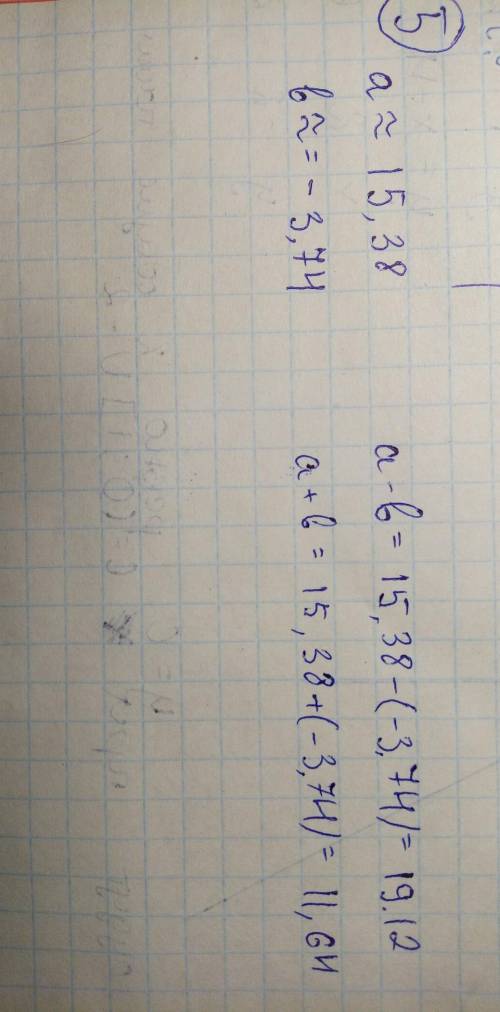 5
a ≈ 15,38
a - b = 15,38 - (-3,74) = 19.12
b ≈ = - 3,74
a + b = 15,38 + (-3,74) = 11,64